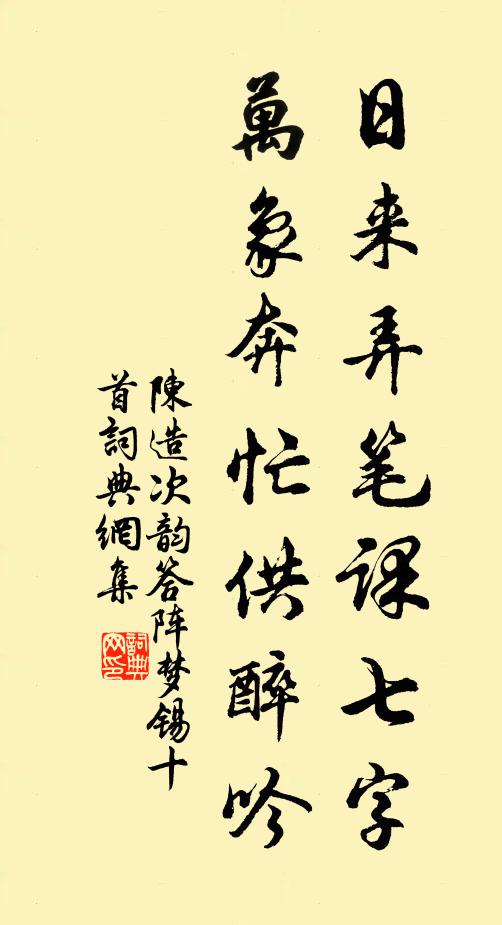 日来弄笔课七字
萬象奔忙供醉吟
陳造次韵答阵梦锡十
首詞典網集
詞典網印